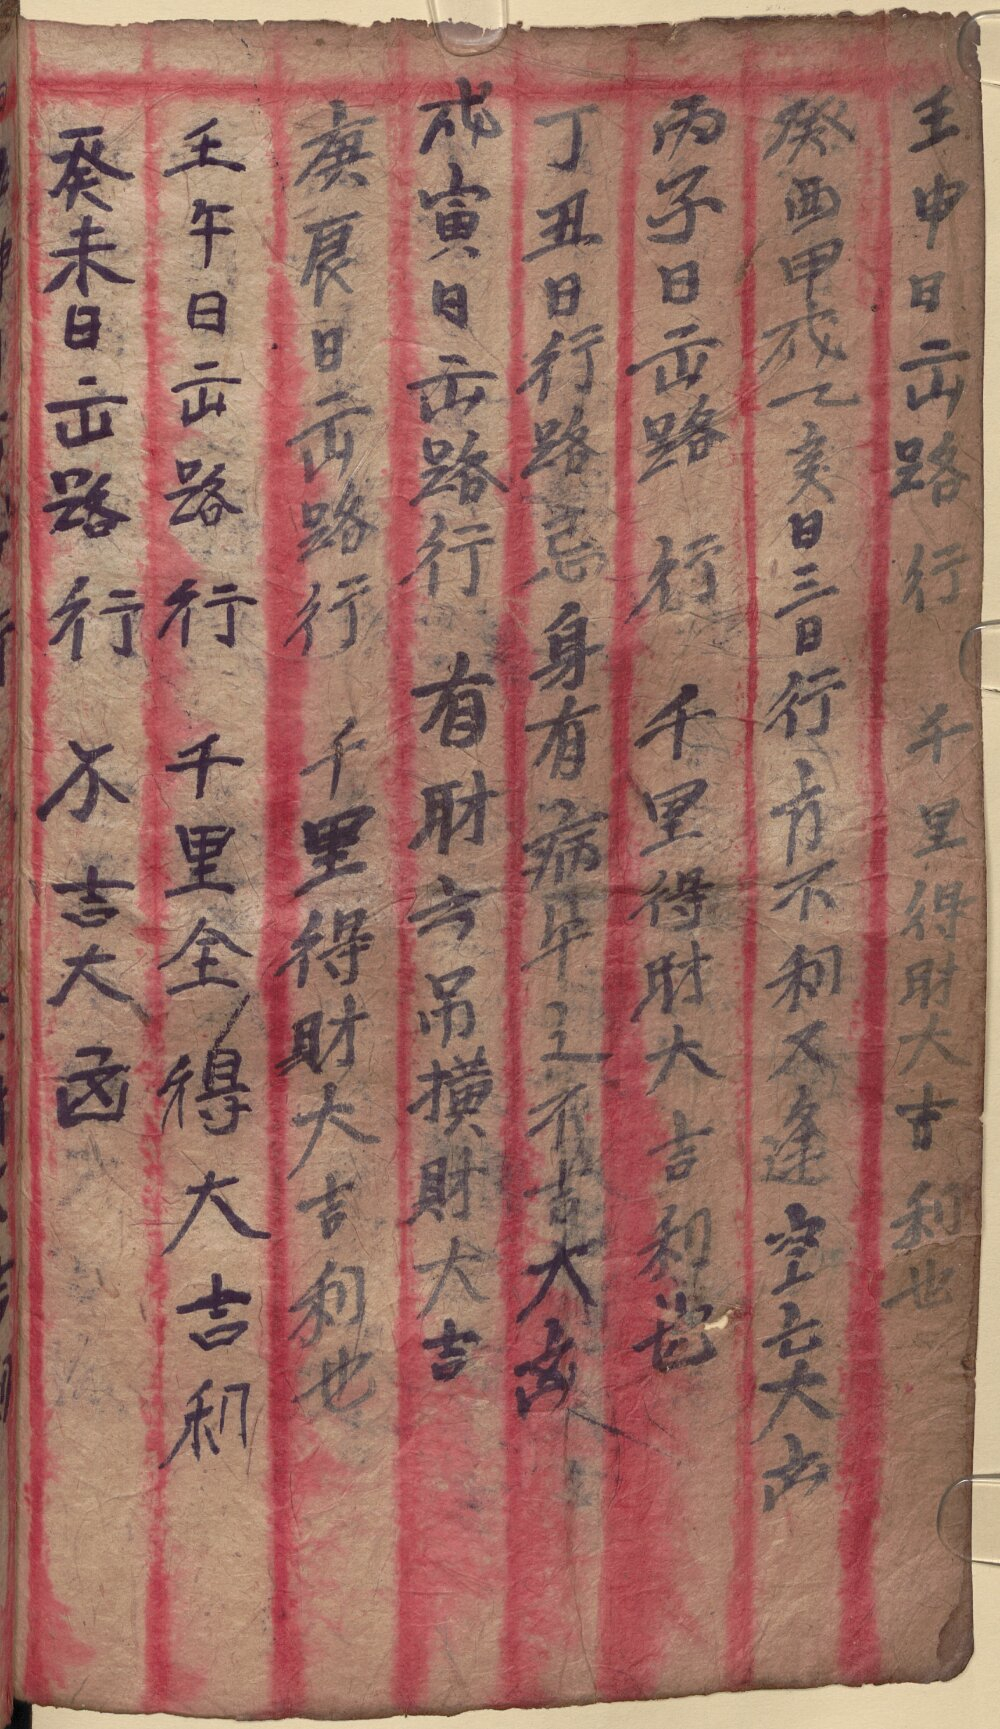 壬申日出路行 千里得財大吉利也
癸酉甲戌乙亥日三日行方不利又逢空亡大凶
丙子日出路行 千里得財大吉利也
丁丑日行路忌身有病年之不吉大凶
戊寅日出路行 有財去吊橫財大吉
庚辰日出路行 千里得財大吉利也
壬午日出路行 千里全得大吉利
癸未日出路行 不吉大凶